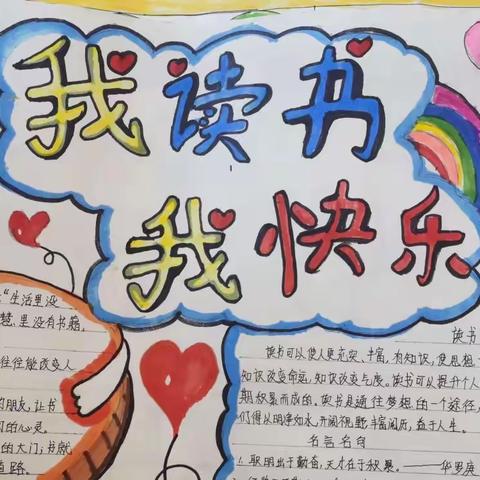 我读书
我快乐
"生活里没
里没有书籍,
往往能改变人
的朋友,让书
的心灵。
的大门;书就
道路。
读书
读书可以使人更充实、丰富,有知识,使思想
知识改变命运,知识改变与度。读书可以提升个人
期积累而成的。读书是通往梦想的一个途径,
们得以明净如水,开阔视野,丰富阅历,益于人生。
名言名句
1. 聪明出于勤奋,天才在于积累。——华罗庚